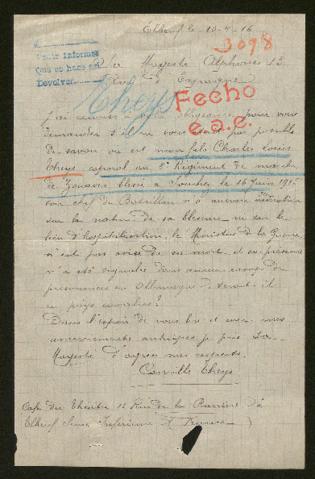 Elbeuf le 10-4-16
3098
Sa Majesté Alphonse 13
Roi d'Espagne
Devolver
Theys
Fecho
J'ai recours à votre obligeance pour vous
demander s'il ne vous serait pas possible
de savoir où est mon fils Charles Louis
Theys caporal au Régiment de marche
de Zouaves blessé à Souchez le 16 Juin 1915
son chef de Bataillon n'a aucune indication
sur la nature de sa blessure ni sur le
lieu d'hospitalisation, le Ministre de la Guerre
n'est pas avisé de sa mort, et sa présence
n'a été signalée dans aucun camp de
prisonniers en Allemagne, serait-il
en pays envahis?
Dans l'espoir de vous lire et avec mes
remerciements anticipés je prie Sa
Majesté d'agréer mes respects.
Theys
Café du Théâtre 12 Rue de la Barrière à
Elbeuf Seine Inférieure France